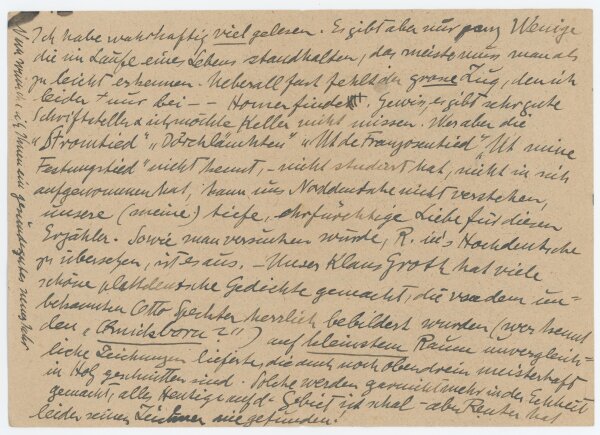 Ich habe wahrhaftig viel gelesen. Es gibt aber nur ganz Wenige
die im Laufe eines Lebens standhalten, das meiste muss man als
zu leicht erkennen. Ueberall fast fehlt der grosse Zug, den ich
leider nur bei - - Homer finde. Gewiss, es gibt sehr gute
Schriftsteller & ich möchte Keller nicht missen. Wer aber die
"Stromtied" "Dörchläuchten" "Ut de Franzosentied" "Ut mine
Festungstied" nicht kennt, - nicht studiert hat, nicht in sich
aufgenommen hat, kann uns Norddeutsche nicht verstehen,
unsere (meine) tiefe, ehrfürchtige Liebe für diesen
Erzähler. Sowie man versuchen würde, R. ins Hochdeutsche
zu übersetzen, ist es aus. - Unser Klaus Groth hat viele
schöne plattdeutsche Gedichte gemacht, die von dem un-
bekannten Otto Speckter herrlich bebildert wurden (wer kennt
den "Quickborn"?) auf kleinstem Raum unvergleich-
liche Zeichnungen lieferte, die auch noch obendrein meisterhaft
in Holz geschnitten sind. Solche werden garnicht mehr in der Echtheit
gemacht, alles Heutige auf d. Gebiet ist schal - aber Reuter hat
leider seinen Zeichner nie gefunden!
Nun wünsche ich Ihnen ein neues Jahr